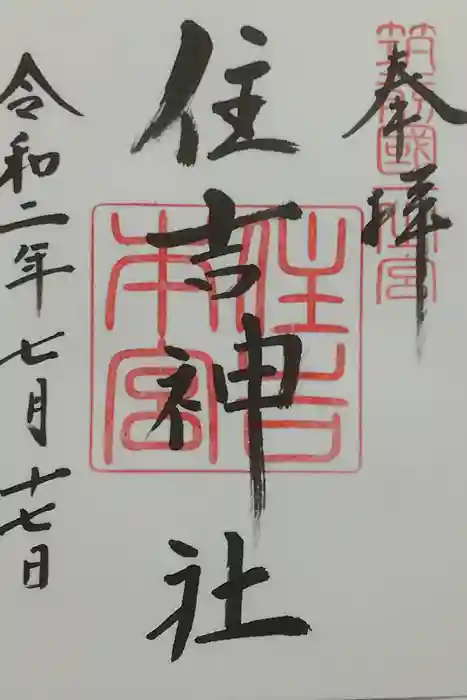 奉拝
筑前國一之宮
住吉神社
住吉本宮
令和二年七月十七日